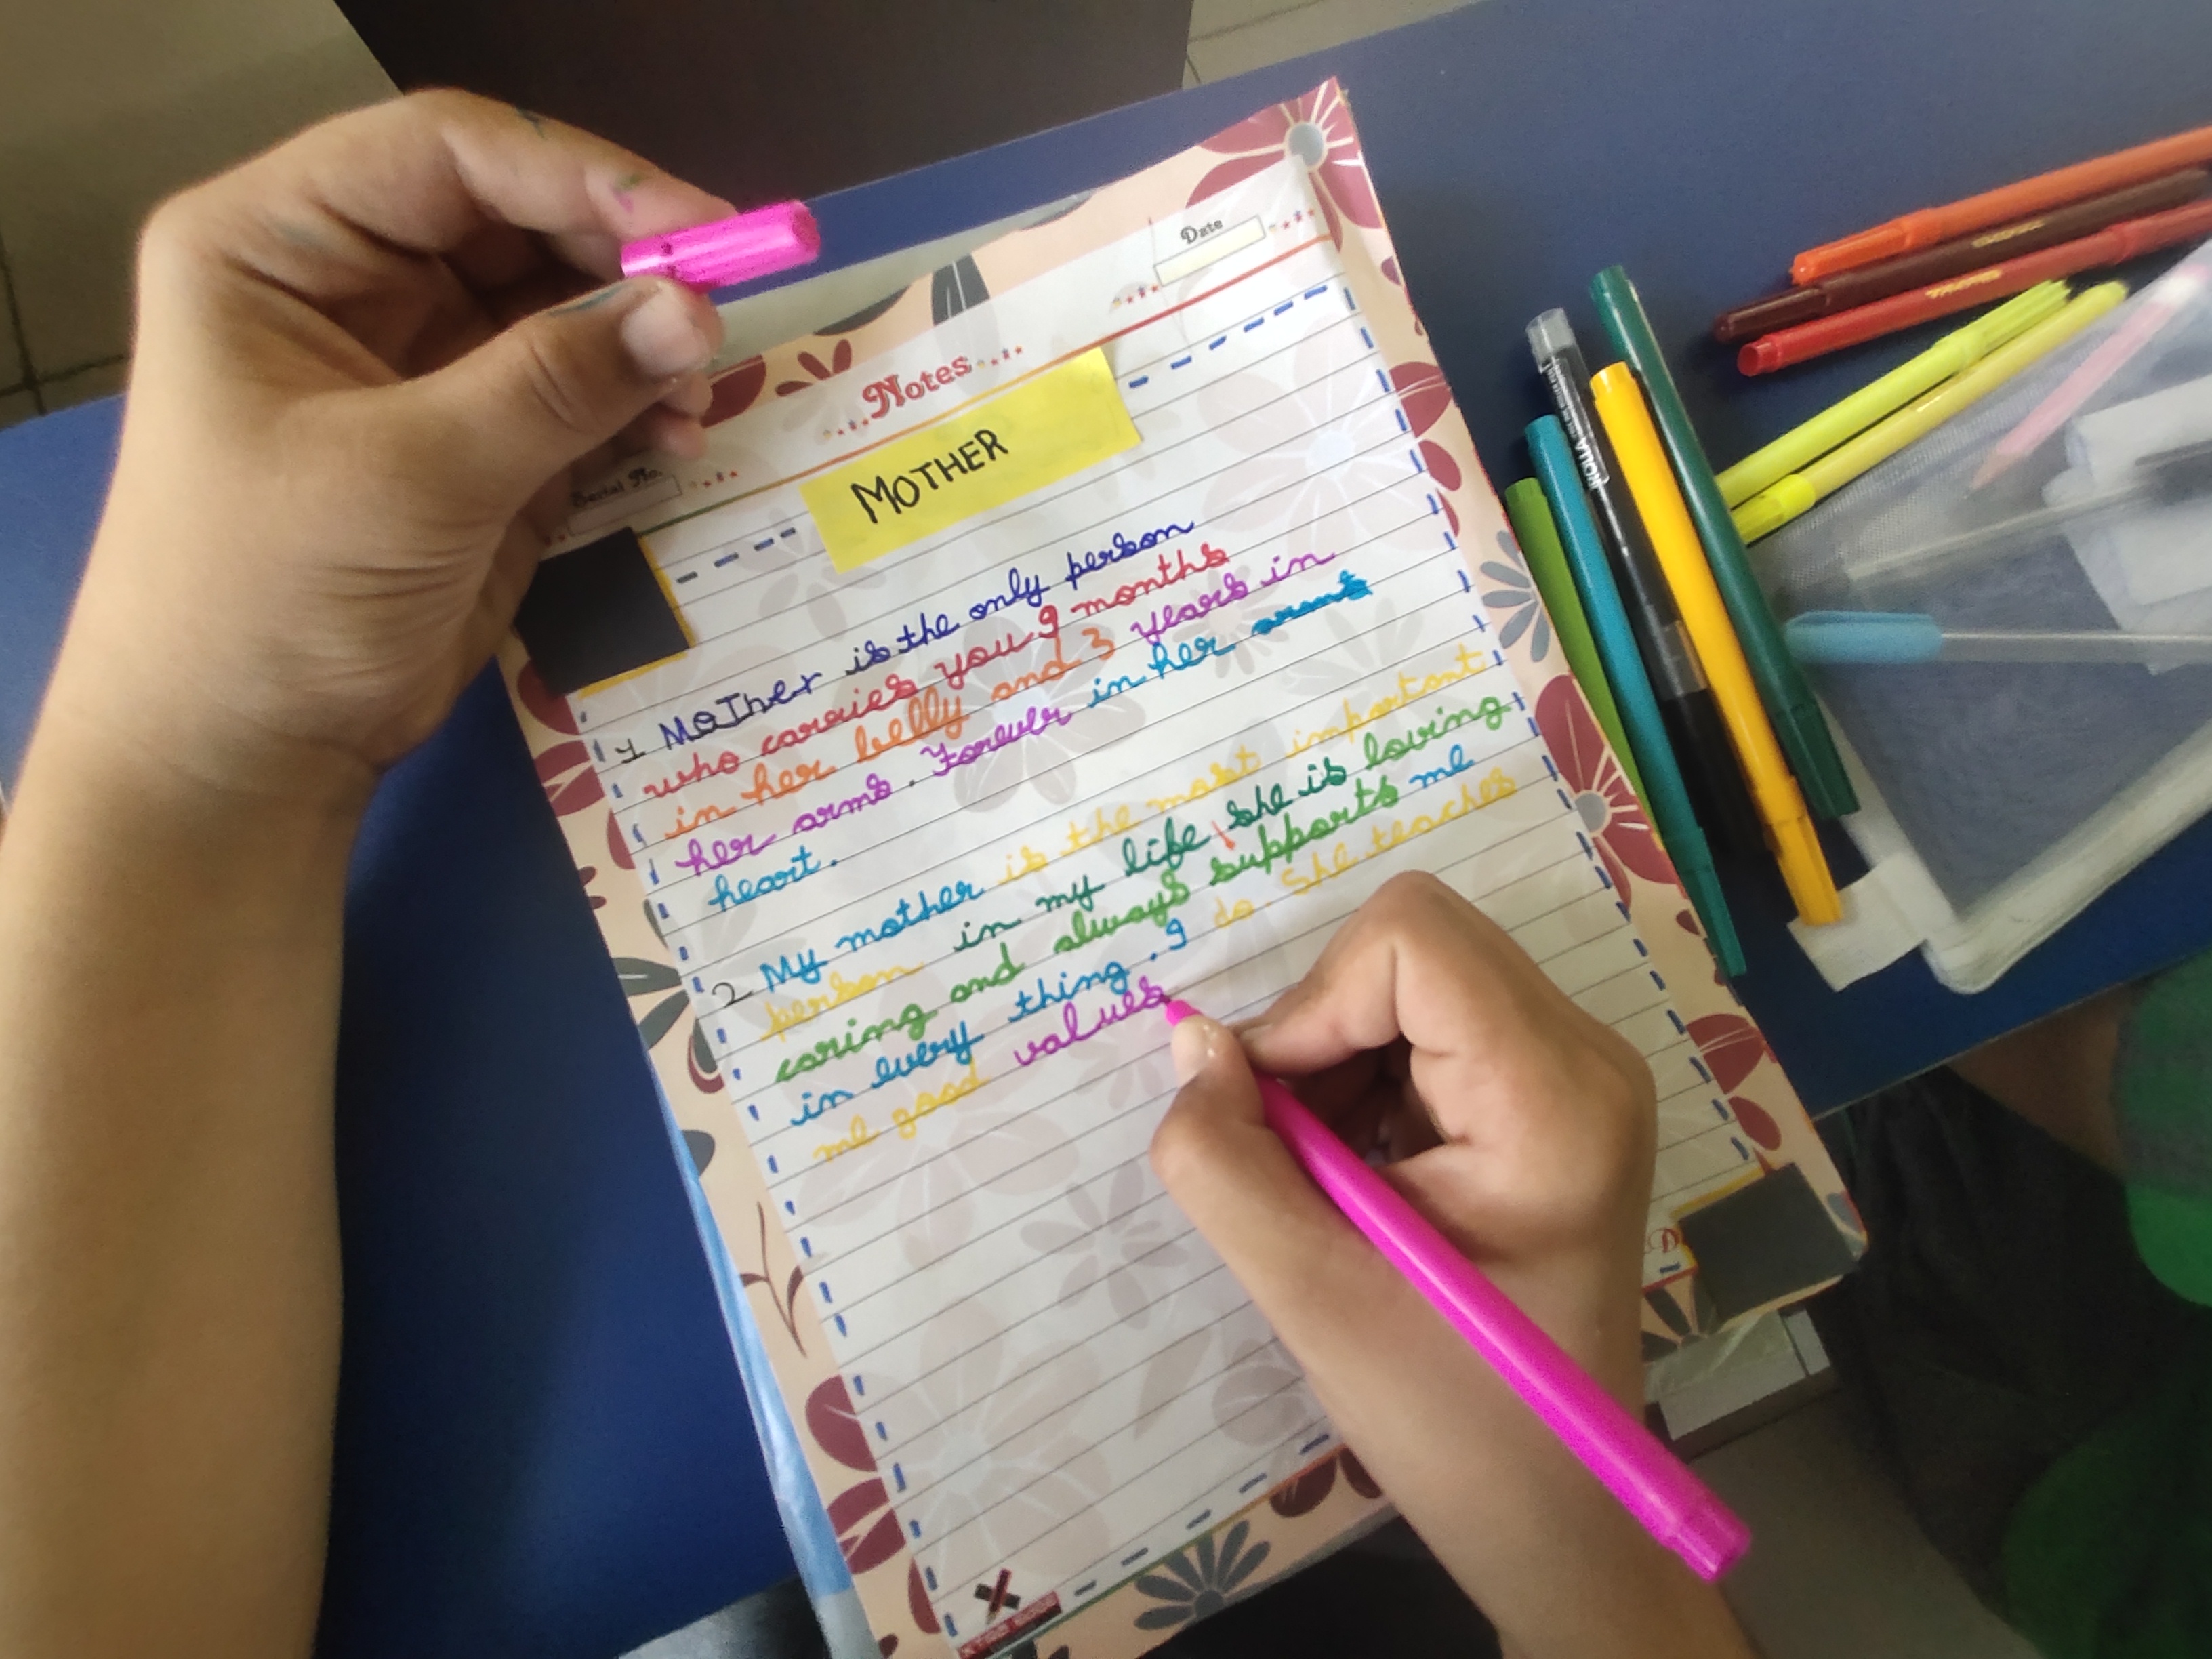 Date
Notes
Serial No.
MOTHER
1 MoTher is the only person
who carries you 9 months
in her belly and 3 years in
her arms. Forever in her
heart.
2 My mother is the most important
person in my life she is loving
caring and always supports me
in every thing. I do. She teaches
me good values